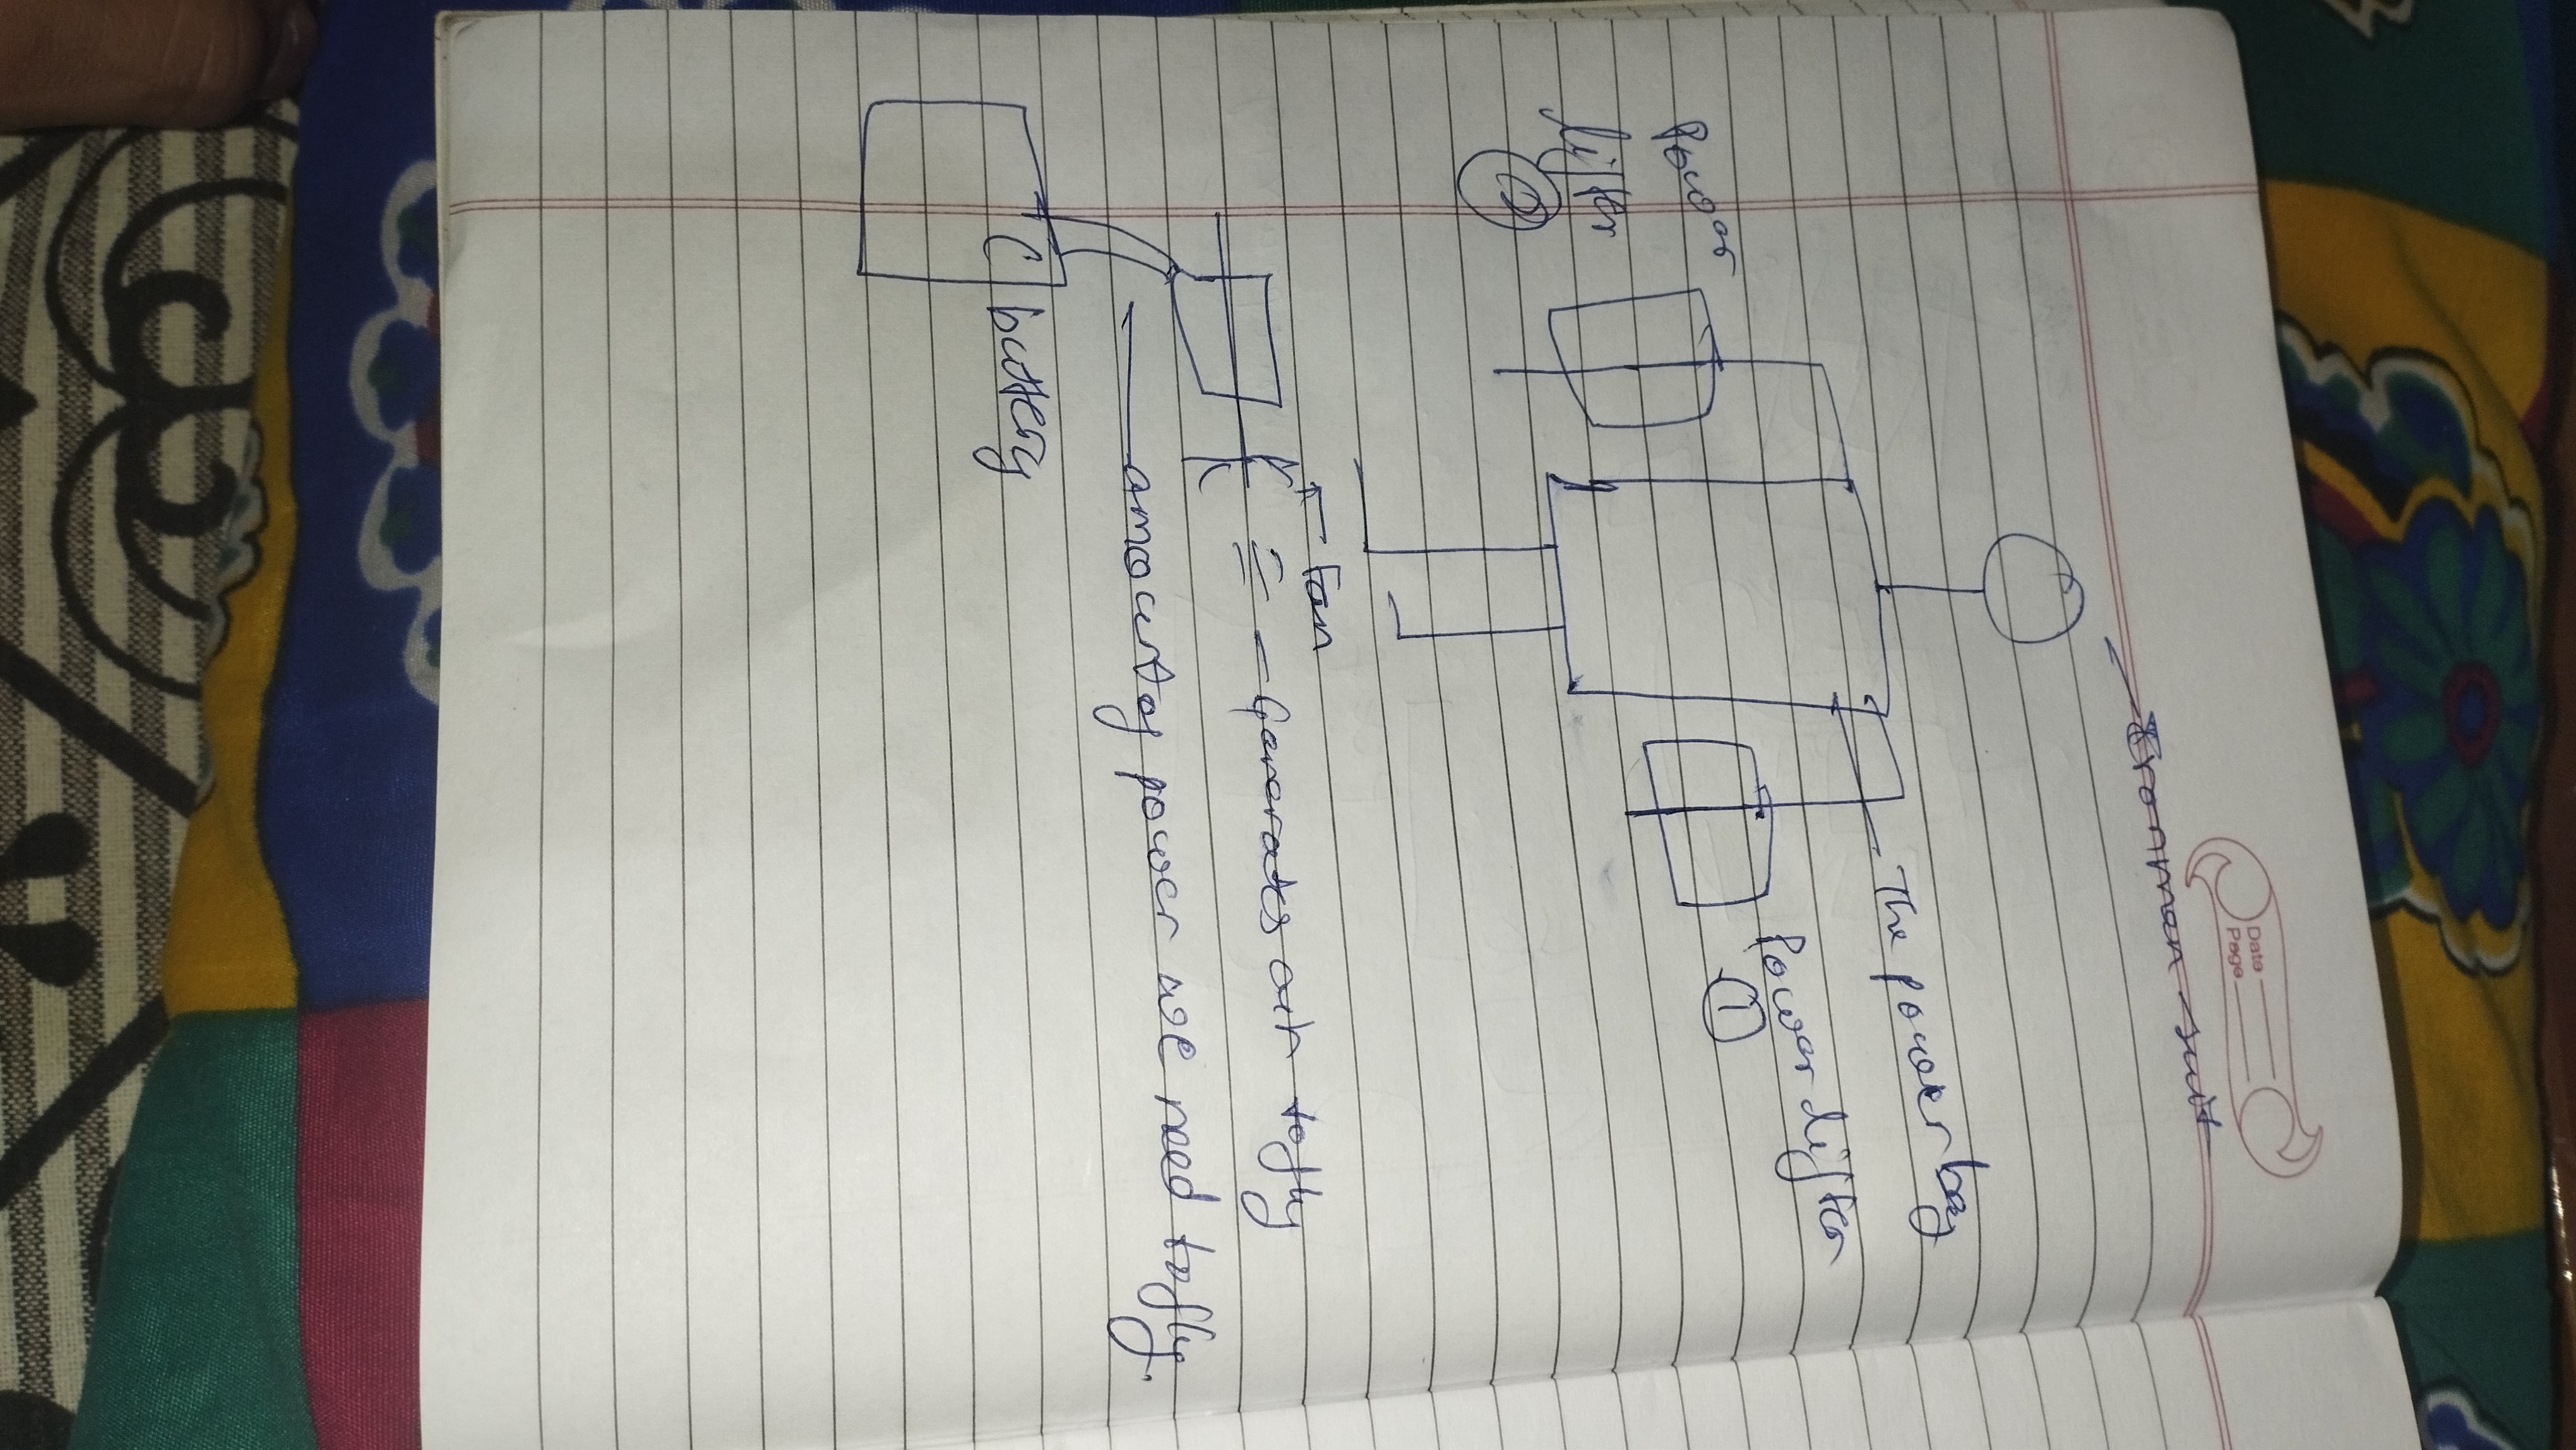 Date
Page
Ironman suit
The power bag
Power lifter
①
Power
lifter
②
Fan
Generates air to fly
amount of power we need to fly.
battery